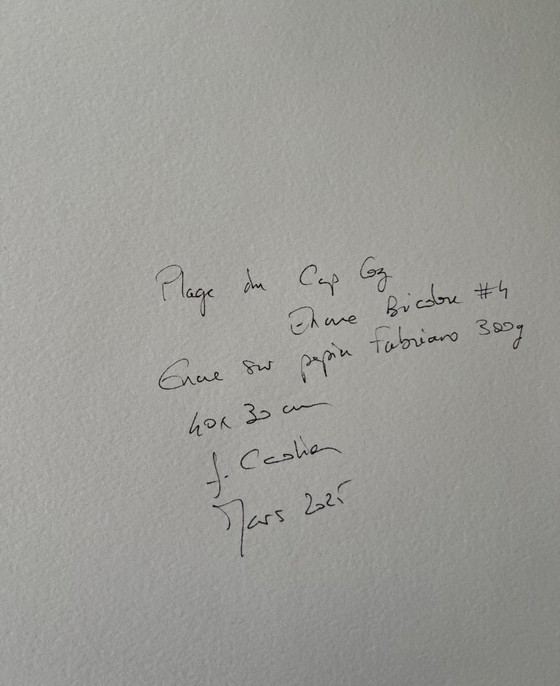 Plage du Cap Gz
Bicolore #4
Encre sur papier Fabriano 300g
40x30 cm
f.
Mars 2025